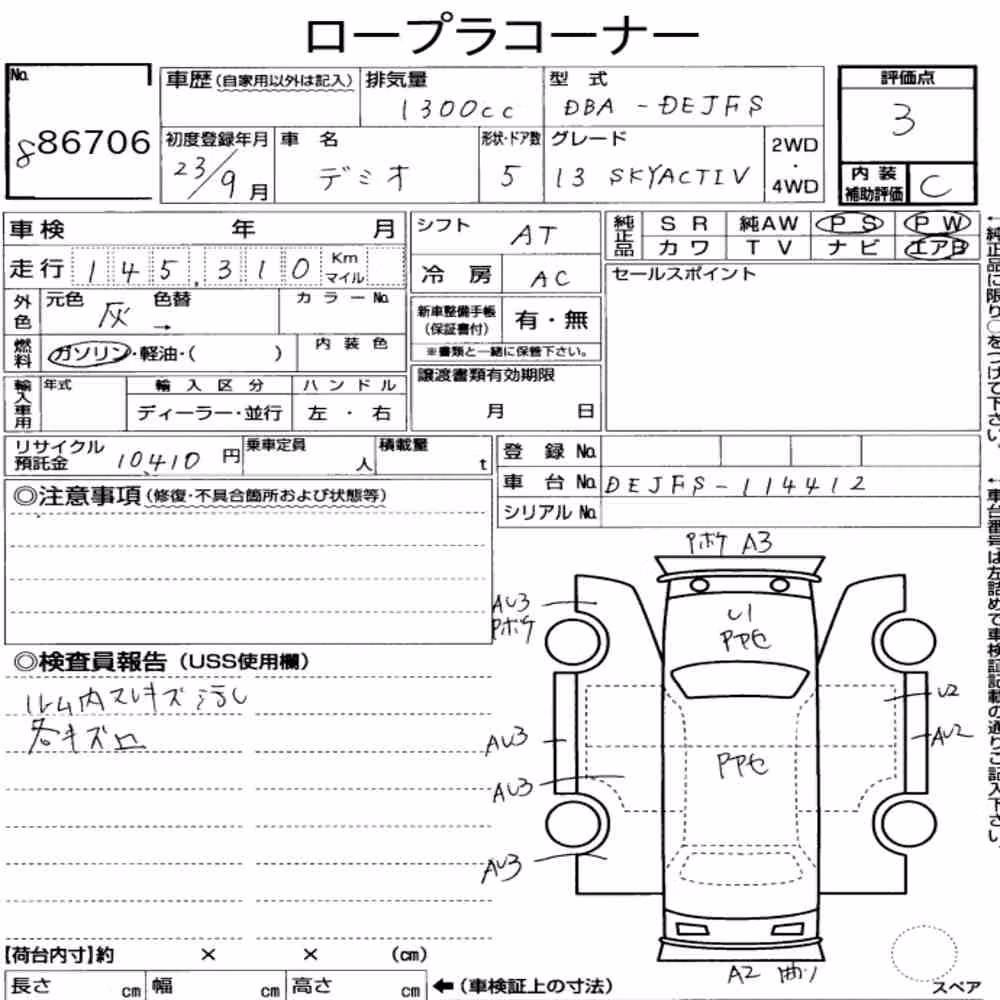 ロープラコーナー
No.
886706
車歴(自家用以外は記入)
排気量
1300cc
型式
DBA-DEJFS
評価点
3
初度登録年月
23/9月
車名
デミオ
形状・ドア数
5
グレード
13 SKYACTIV
2WD
・
4WD
内装
補助評価
C
車検 年 月
シフト
AT
純正品
SR 純AW PS PW
カワ TV ナビ エアB
走行 145,310 Km マイル
冷房
AC
セールスポイント
外色
元色 灰 色替 →
カラーNo.
新車整備手帳
(保証書付)
有・無
※書類と一緒に保管下さい。
燃料
ガソリン・軽油・( )
内装色
輸入車用
年式
輸入区分
ディーラー・並行
ハンドル
左・右
譲渡書類有効期限
月 日
←純正品に限り○をつけて下さい。
リサイクル
預託金
10,410円
乗車定員
人
積載量
t
登録No.
車台No. DEJFS-114412
シリアルNo.
←車台番号は左詰めで車検証記載の通りご記入下さい。
◎注意事項(修復・不具合箇所および状態等)
Pボケ A3
AU3
Pボケ
U1
PP色
◎検査員報告(USS使用欄)
ルーム内スレキズ汚し
各キズ凹
U2
AU3
AU2
PP色
AU3
AU3
【荷台内寸】約 × × (cm)
A2
長さ cm 幅 cm 高さ cm ←(車検証上の寸法)
スペア